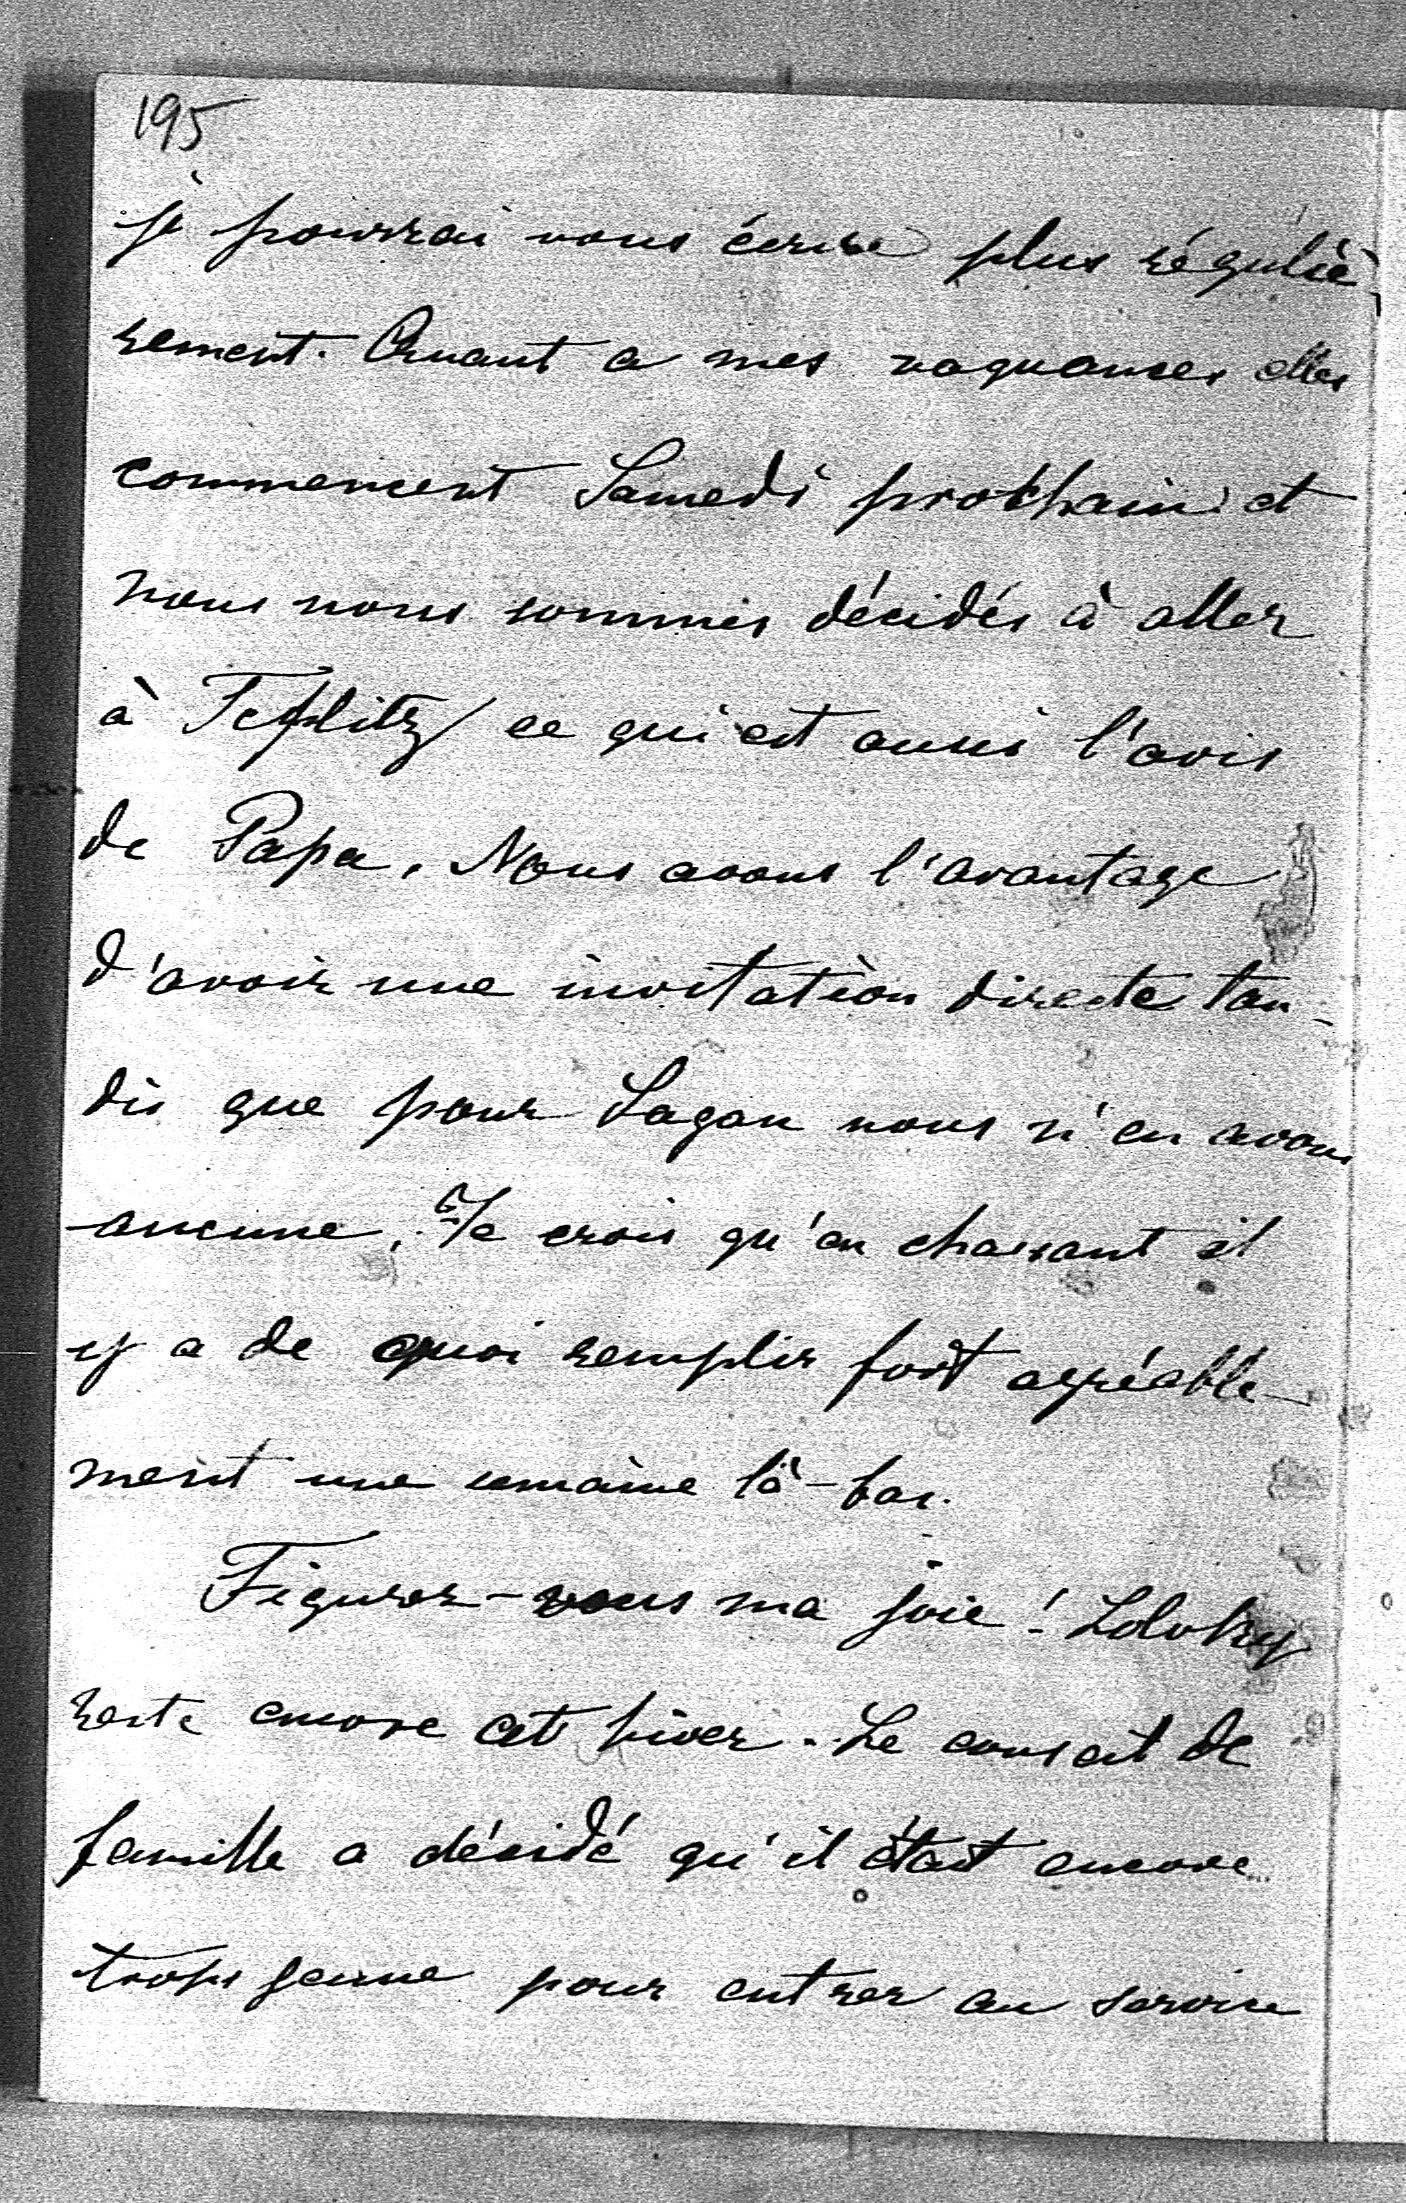 195
je pourrai vous écrire plus réguliè-
rement. Quant a mes vaquances elles
commencent Samedi prochain et
nous nous sommes décidés à aller
à Teplitz ce qui est aussi l'avis
de Papa. Nous avons l'avantage
d'avoir une invitation directe tan-
dis que pour Sagan nous n'en avons
aucune. Je crois qu'en chassant il
y a de quoi remplir fort agréable-
ment une semaine là-bas.
Figurez-vous ma joie!
reste encore cet hiver. Le conseil de
famille a décidé qu'il était encore
trop jeune pour entrer au service